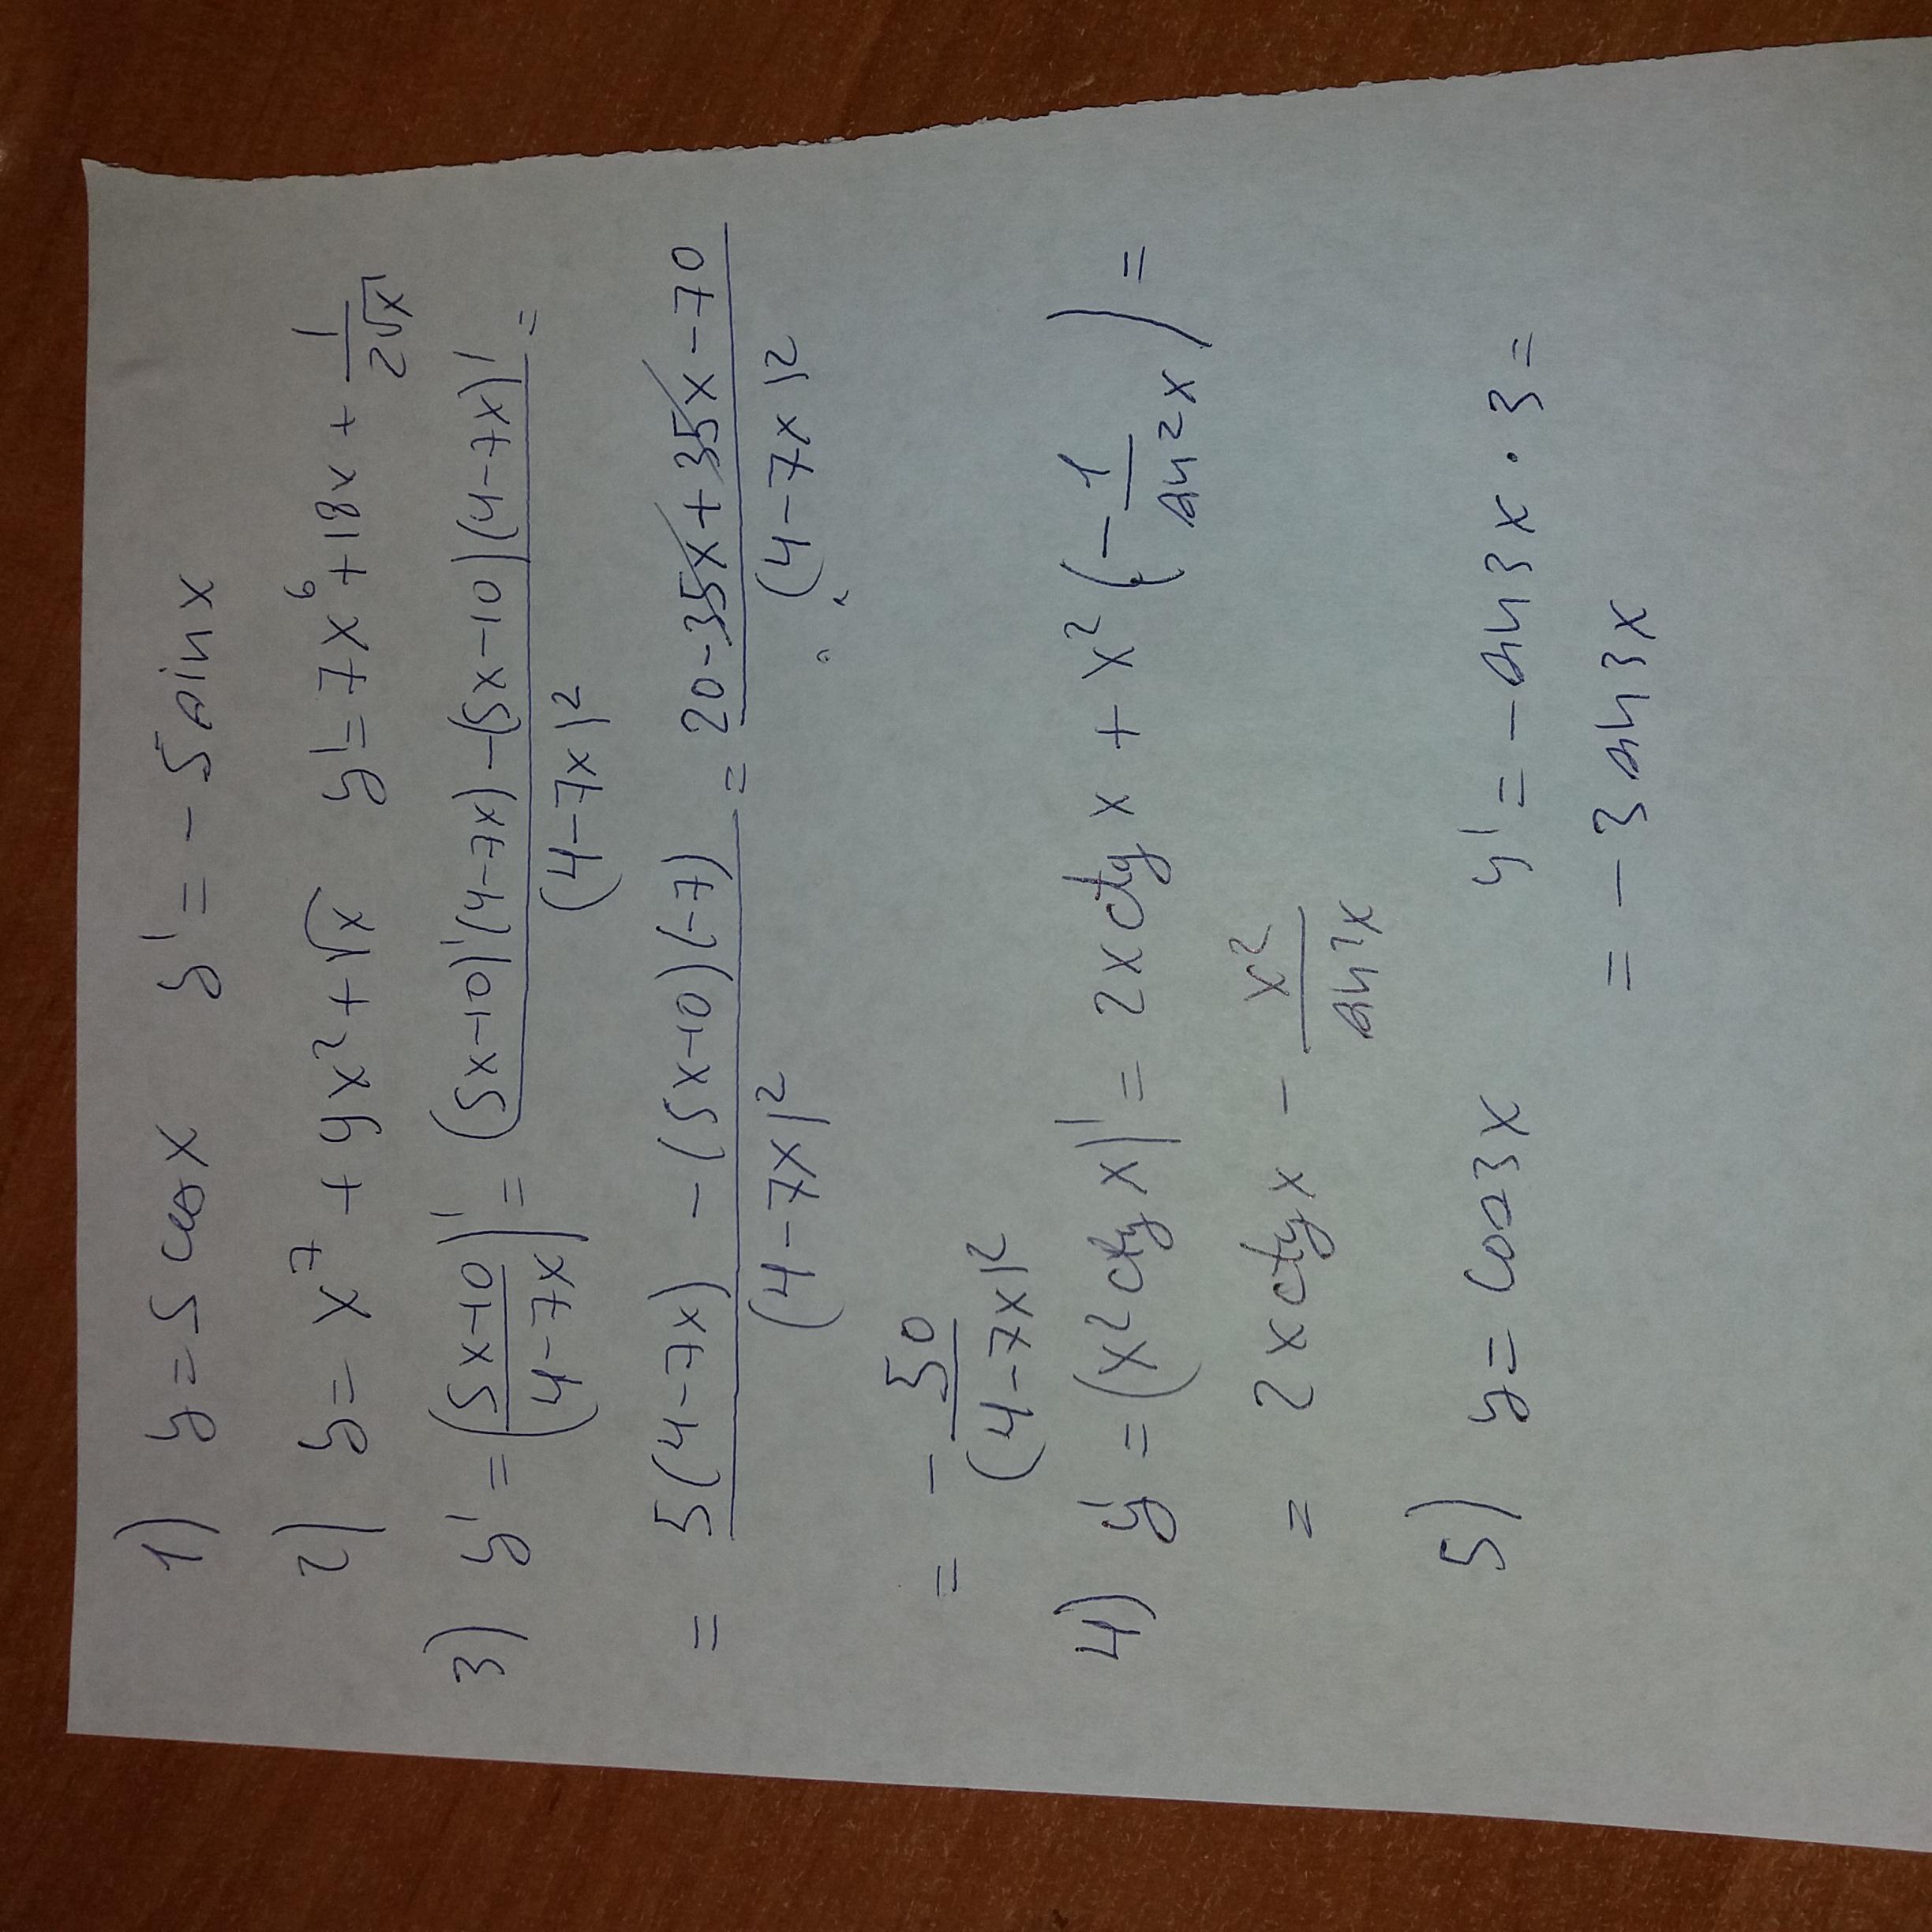 1) y = 5 cos x y' = - 5 sin x
2) y = x⁷ + 9x² + √x y' = 7x⁶ + 18x + 1/(2√x)
3) y' = ((5x-10)/(4-7x))' = ((5x-10)'(4-7x) - (5x-10)(4-7x)')/(4-7x)² =
= (5(4-7x) - (5x-10)(-7))/(4-7x)² = (20-35x+35x-70)/(4-7x)²
= - 50/(4-7x)²
4) y' = (x² ctg x)' = 2x ctg x + x² (- 1/sin²x) =
= 2x ctg x - x²/sin²x
5) y = cos 3x y' = - sin 3x · 3 =
= - 3 sin 3x